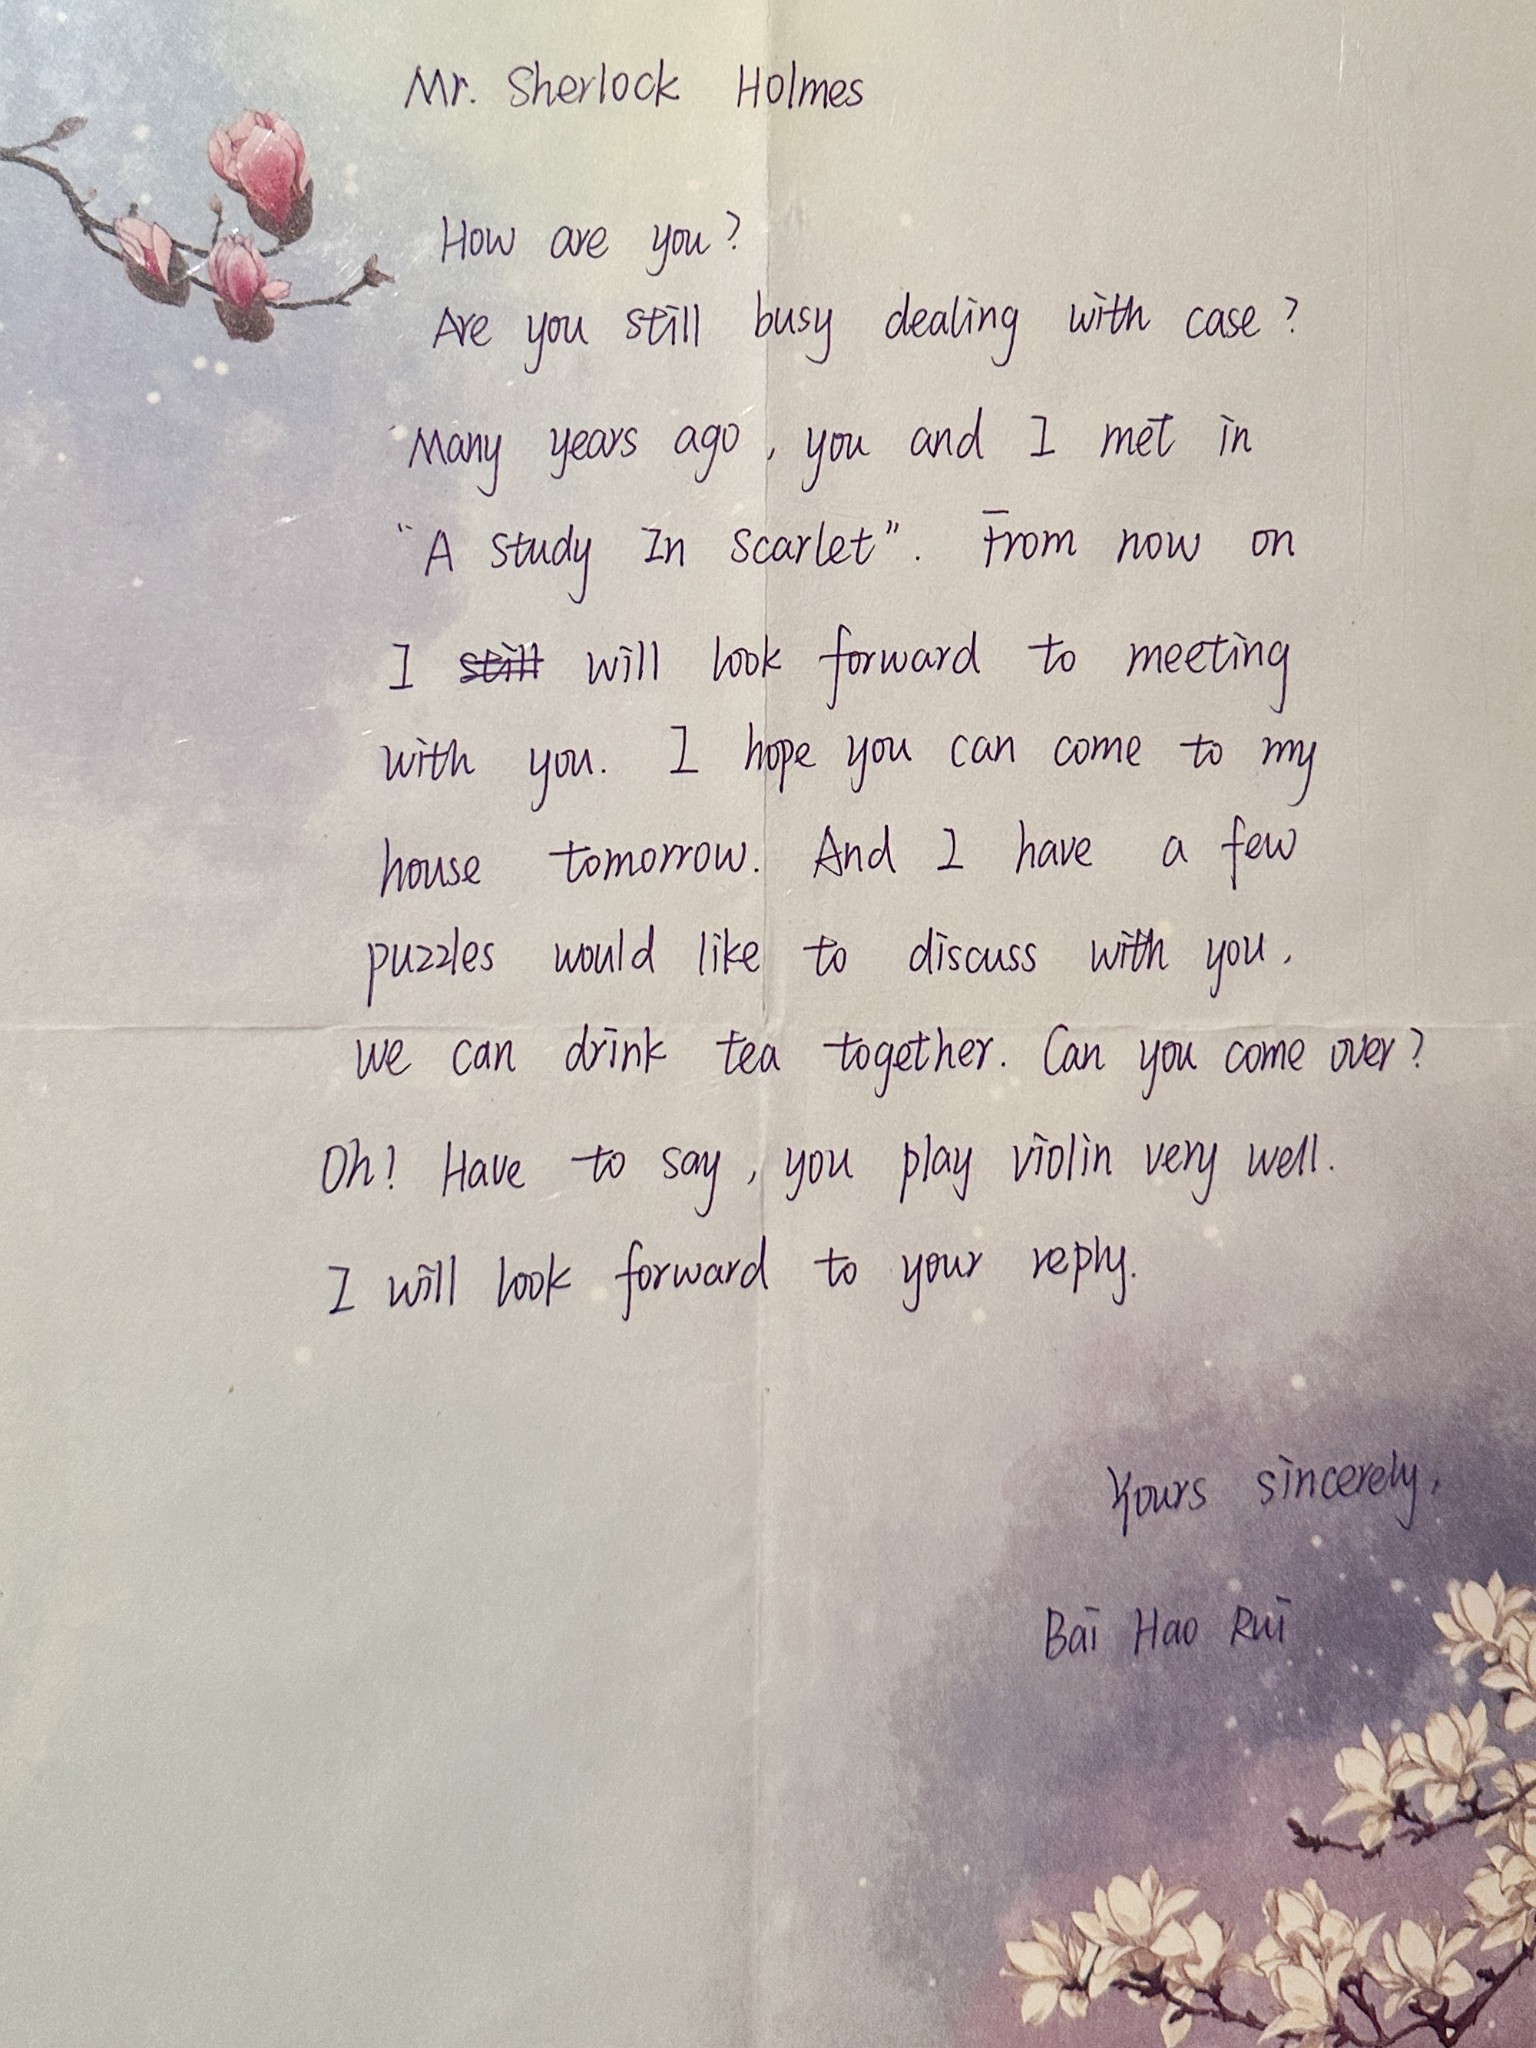 Mr. Sherlock Holmes
How are you?
Are you still busy dealing with case?
Many years ago, you and I met in
"A study In Scarlet". From now on
I still will look forward to meeting
with you. I hope you can come to my
house tomorrow. And I have a few
puzzles would like to discuss with you,
we can drink tea together. Can you come over?
Oh! Have to say, you play violin very well.
I will look forward to your reply.
Yours sincerely,
Bai Hao Rui